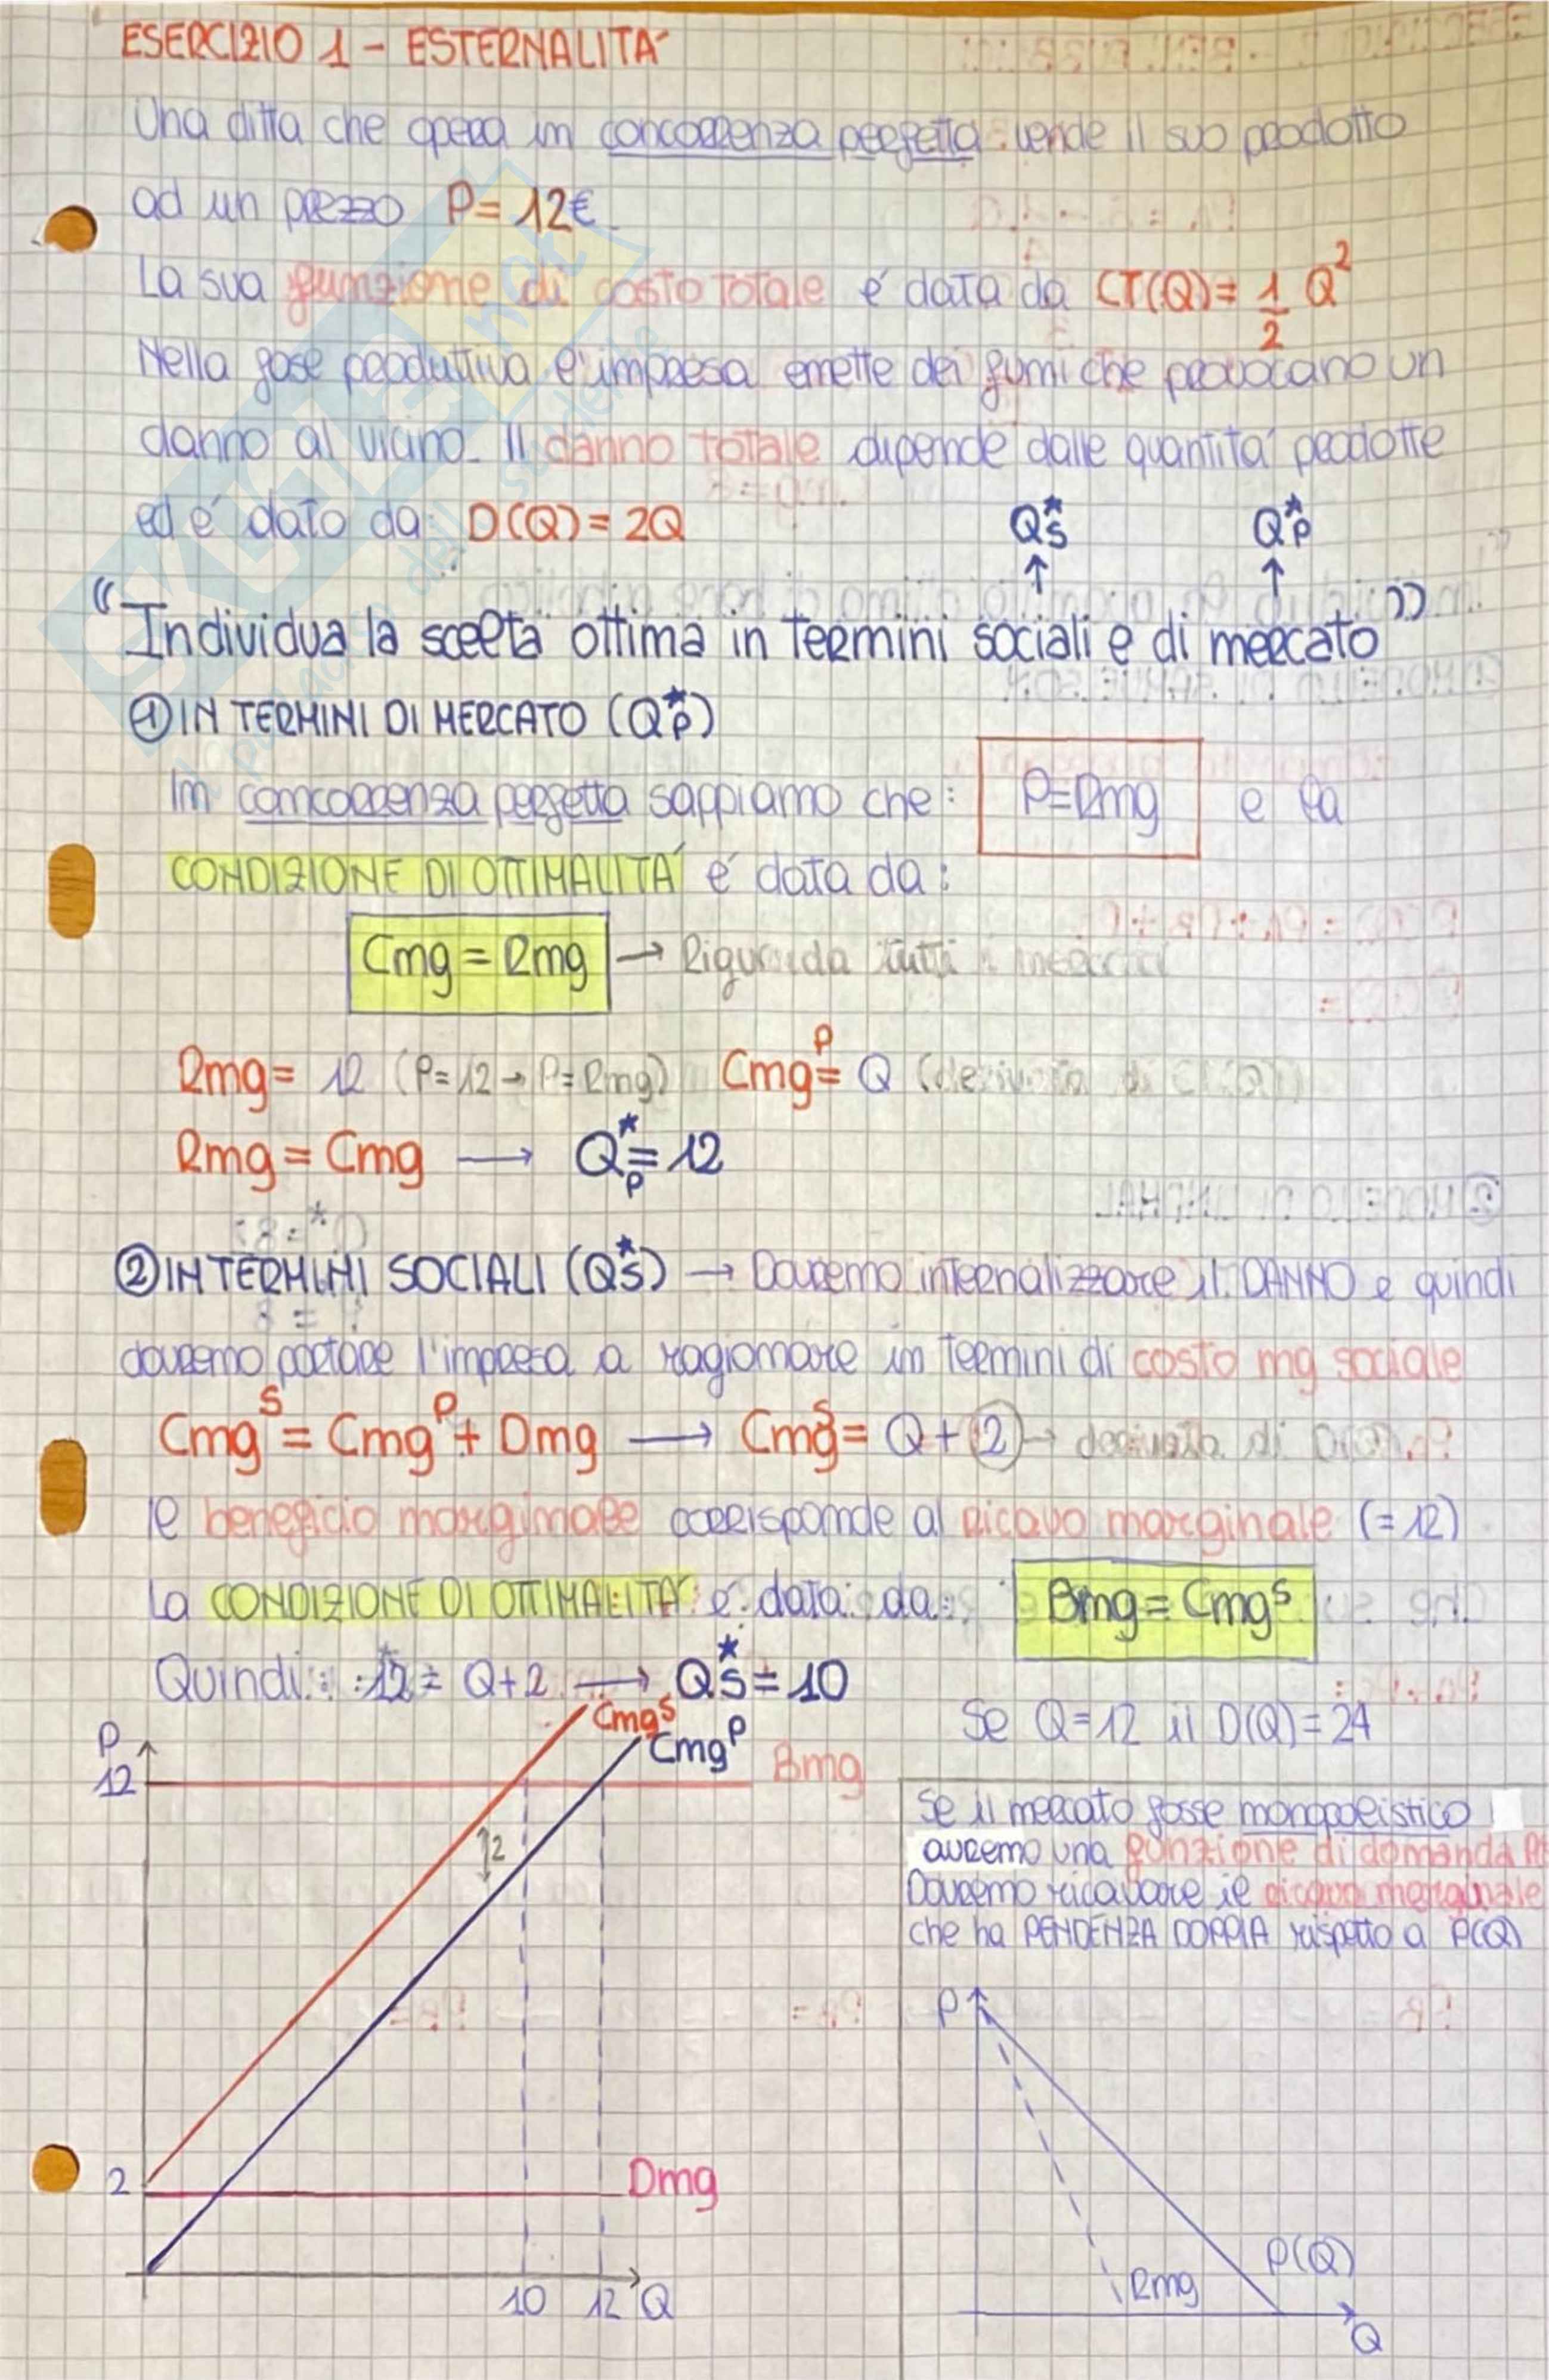 ESERCIZIO 1 - ESTERNALITA'
Una ditta che opera in concorrenza perfetta vende il suo prodotto
ad un prezzo P= 12€
La sua funzione di costo totale e' data da CT(Q)= 1/2 Q²
Nella fase produttiva l'impresa emette dei fumi che provocano un
danno al vicino. Il danno totale dipende dalle quantita' prodotte
ed e' dato da: D(Q)= 2Q
Q*S ↑ Q*P ↑
"Individua la scelta ottima in termini sociali e di mercato"
① IN TERMINI DI MERCATO (Q*P)
In concorrenza perfetta sappiamo che: P=Rmg e la
CONDIZIONE DI OTTIMALITA' e' data da:
Cmg = Rmg → Riguarda tutti i mercati
Rmg= 12 (P=12 → P=Rmg) Cmg^P= Q (derivata di CT(Q))
Rmg = Cmg → Q*P= 12
② IN TERMINI SOCIALI (Q*S) → Dovremo internalizzare il DANNO e quindi
dovremo portare l'impresa a ragionare in termini di costo mg sociale
Cmg^S = Cmg^P + Dmg → Cmg^S= Q + 2 → derivata di D(Q)
Il beneficio marginale corrisponde al ricavo marginale (=12)
La CONDIZIONE DI OTTIMALITA' e' data da: Bmg = Cmg^S
Quindi: 12 = Q+2 → Q*S = 10
Se Q=12 il D(Q)= 24
P
12
Cmg^S
Cmg^P
Bmg
2
2
Dmg
10 12 Q
Se il mercato fosse monopolistico
avremo una funzione di domanda
Dovremo ricavare il ricavo marginale
che ha PENDENZA DOPPIA rispetto a P(Q)
P
P(Q)
Rmg
Q
SKUOLA.net
Il paradiso dello studente